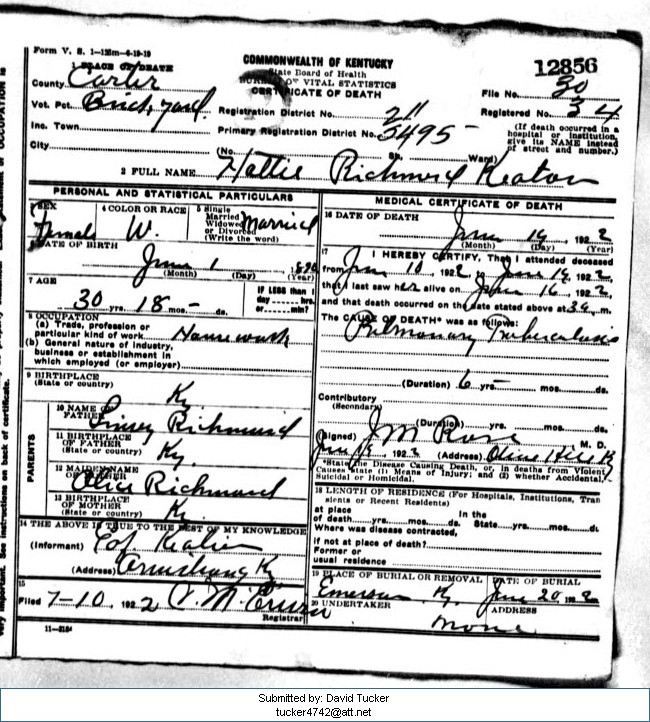 Form V. S. 1—125m—6-19-19
1 PLACE OF DEATH
COMMONWEALTH OF KENTUCKY
State Board of Health
BUREAU OF VITAL STATISTICS
CERTIFICATE OF DEATH
12856
County Carter
File No. 30
Vot. Pct. Brickyard
Registration District No. 211
Registered No. 34
Inc. Town
Primary Registration District No. 5495
(If death occurred in a hospital or institution, give its NAME instead of street and number.)
City
(No. St. Ward)
2 FULL NAME Hattie Richmond Keaton
PERSONAL AND STATISTICAL PARTICULARS
3 SEX Female
4 COLOR OR RACE W.
5 Single Married Widowed or Divorced (Write the word) Married
DATE OF BIRTH
June 1
(Month) (Day) (Year)
7 AGE
IF LESS than 1
day hrs.
or min.?
30 yrs. 18 mos. — ds.
8 OCCUPATION
(a) Trade, profession or
particular kind of work Housework
(b) General nature of industry,
business or establishment in
which employed (or employer)
9 BIRTHPLACE
(State or country) Ky
PARENTS
10 NAME OF
FATHER Richmond
11 BIRTHPLACE
OF FATHER
(State or country) Ky.
12 MAIDEN NAME
OF MOTHER Alice Richmond
13 BIRTHPLACE
OF MOTHER
(State or country) Ky.
14 THE ABOVE IS TRUE TO THE BEST OF MY KNOWLEDGE
(Informant) Keaton
(Address) Armstrong Ky
15
Filed 7-10, 1922
Registrar
11—3184
MEDICAL CERTIFICATE OF DEATH
16 DATE OF DEATH
June 19, 1922
(Month) (Day) (Year)
17 I HEREBY CERTIFY, That I attended deceased
from June 10, 1922, to June 19, 1922,
that I last saw her alive on June 16, 1922,
and that death occurred on the date stated above at m.
The CAUSE OF DEATH* was as follows:
Pulmonary Tuberculosis
(Duration) 6 yrs. — mos. ds.
Contributory
(Secondary)
(Duration) yrs. mos. ds.
(Signed) J M Rose M. D.
1922 (Address) Olive Hill Ky
*State the Disease Causing Death, or, in deaths from Violent
Causes state (1) Means of Injury; and (2) whether Accidental,
Suicidal or Homicidal.
18 LENGTH OF RESIDENCE (For Hospitals, Institutions, Tran
sients or Recent Residents)
at place In the
of death yrs. mos. ds. State yrs. mos. ds
Where was disease contracted,
if not at place of death?
Former or
usual residence
19 PLACE OF BURIAL OR REMOVAL DATE OF BURIAL
Emerson Ky June 20 1922
20 UNDERTAKER ADDRESS
None
Submitted by: David Tucker
tucker4742@att.net